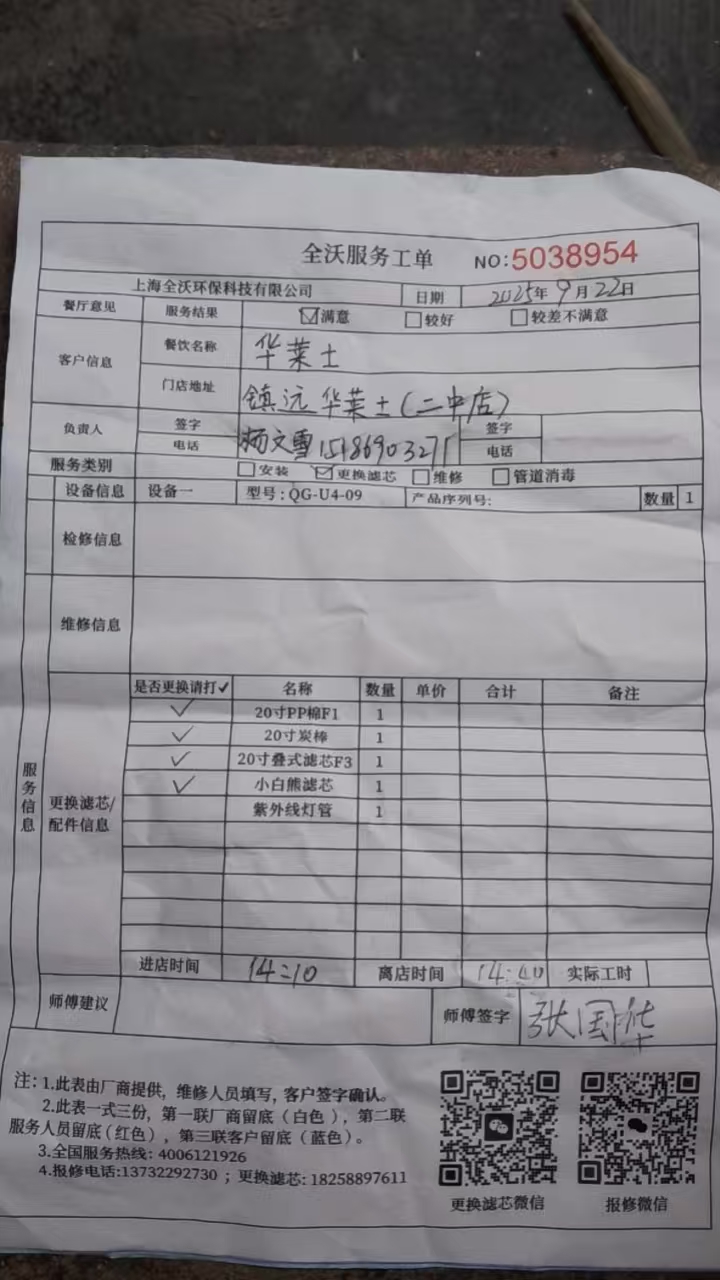 全沃服务工单 NO:5038954
上海全沃环保科技有限公司 日期 2025年9月22日
餐厅意见 服务结果 ☑满意 ☐较好 ☐较差不满意
客户信息 餐饮名称 华莱士
门店地址 镇远华莱士(二中店)
负责人 签字 杨文雪 签字
电话 15186903271 电话
服务类别 ☐安装 ☑更换滤芯 ☐维修 ☐管道消毒
设备信息 设备一 型号:QG-U4-09 产品序列号: 数量 1
检修信息
维修信息
服务信息
更换滤芯/配件信息
是否更换请打✓ 名称 数量 单价 合计 备注
✓ 20寸PP棉F1 1
✓ 20寸炭棒 1
✓ 20寸叠式滤芯F3 1
✓ 小白熊滤芯 1
紫外线灯管 1
进店时间 14:10 离店时间 14:40 实际工时
师傅建议 师傅签字 张国华
注:1.此表由厂商提供,维修人员填写,客户签字确认。
2.此表一式三份,第一联厂商留底(白色),第二联
服务人员留底(红色),第三联客户留底(蓝色)。
3.全国服务热线: 4006121926
4.报修电话:13732292730 ; 更换滤芯: 18258897611
更换滤芯微信 报修微信